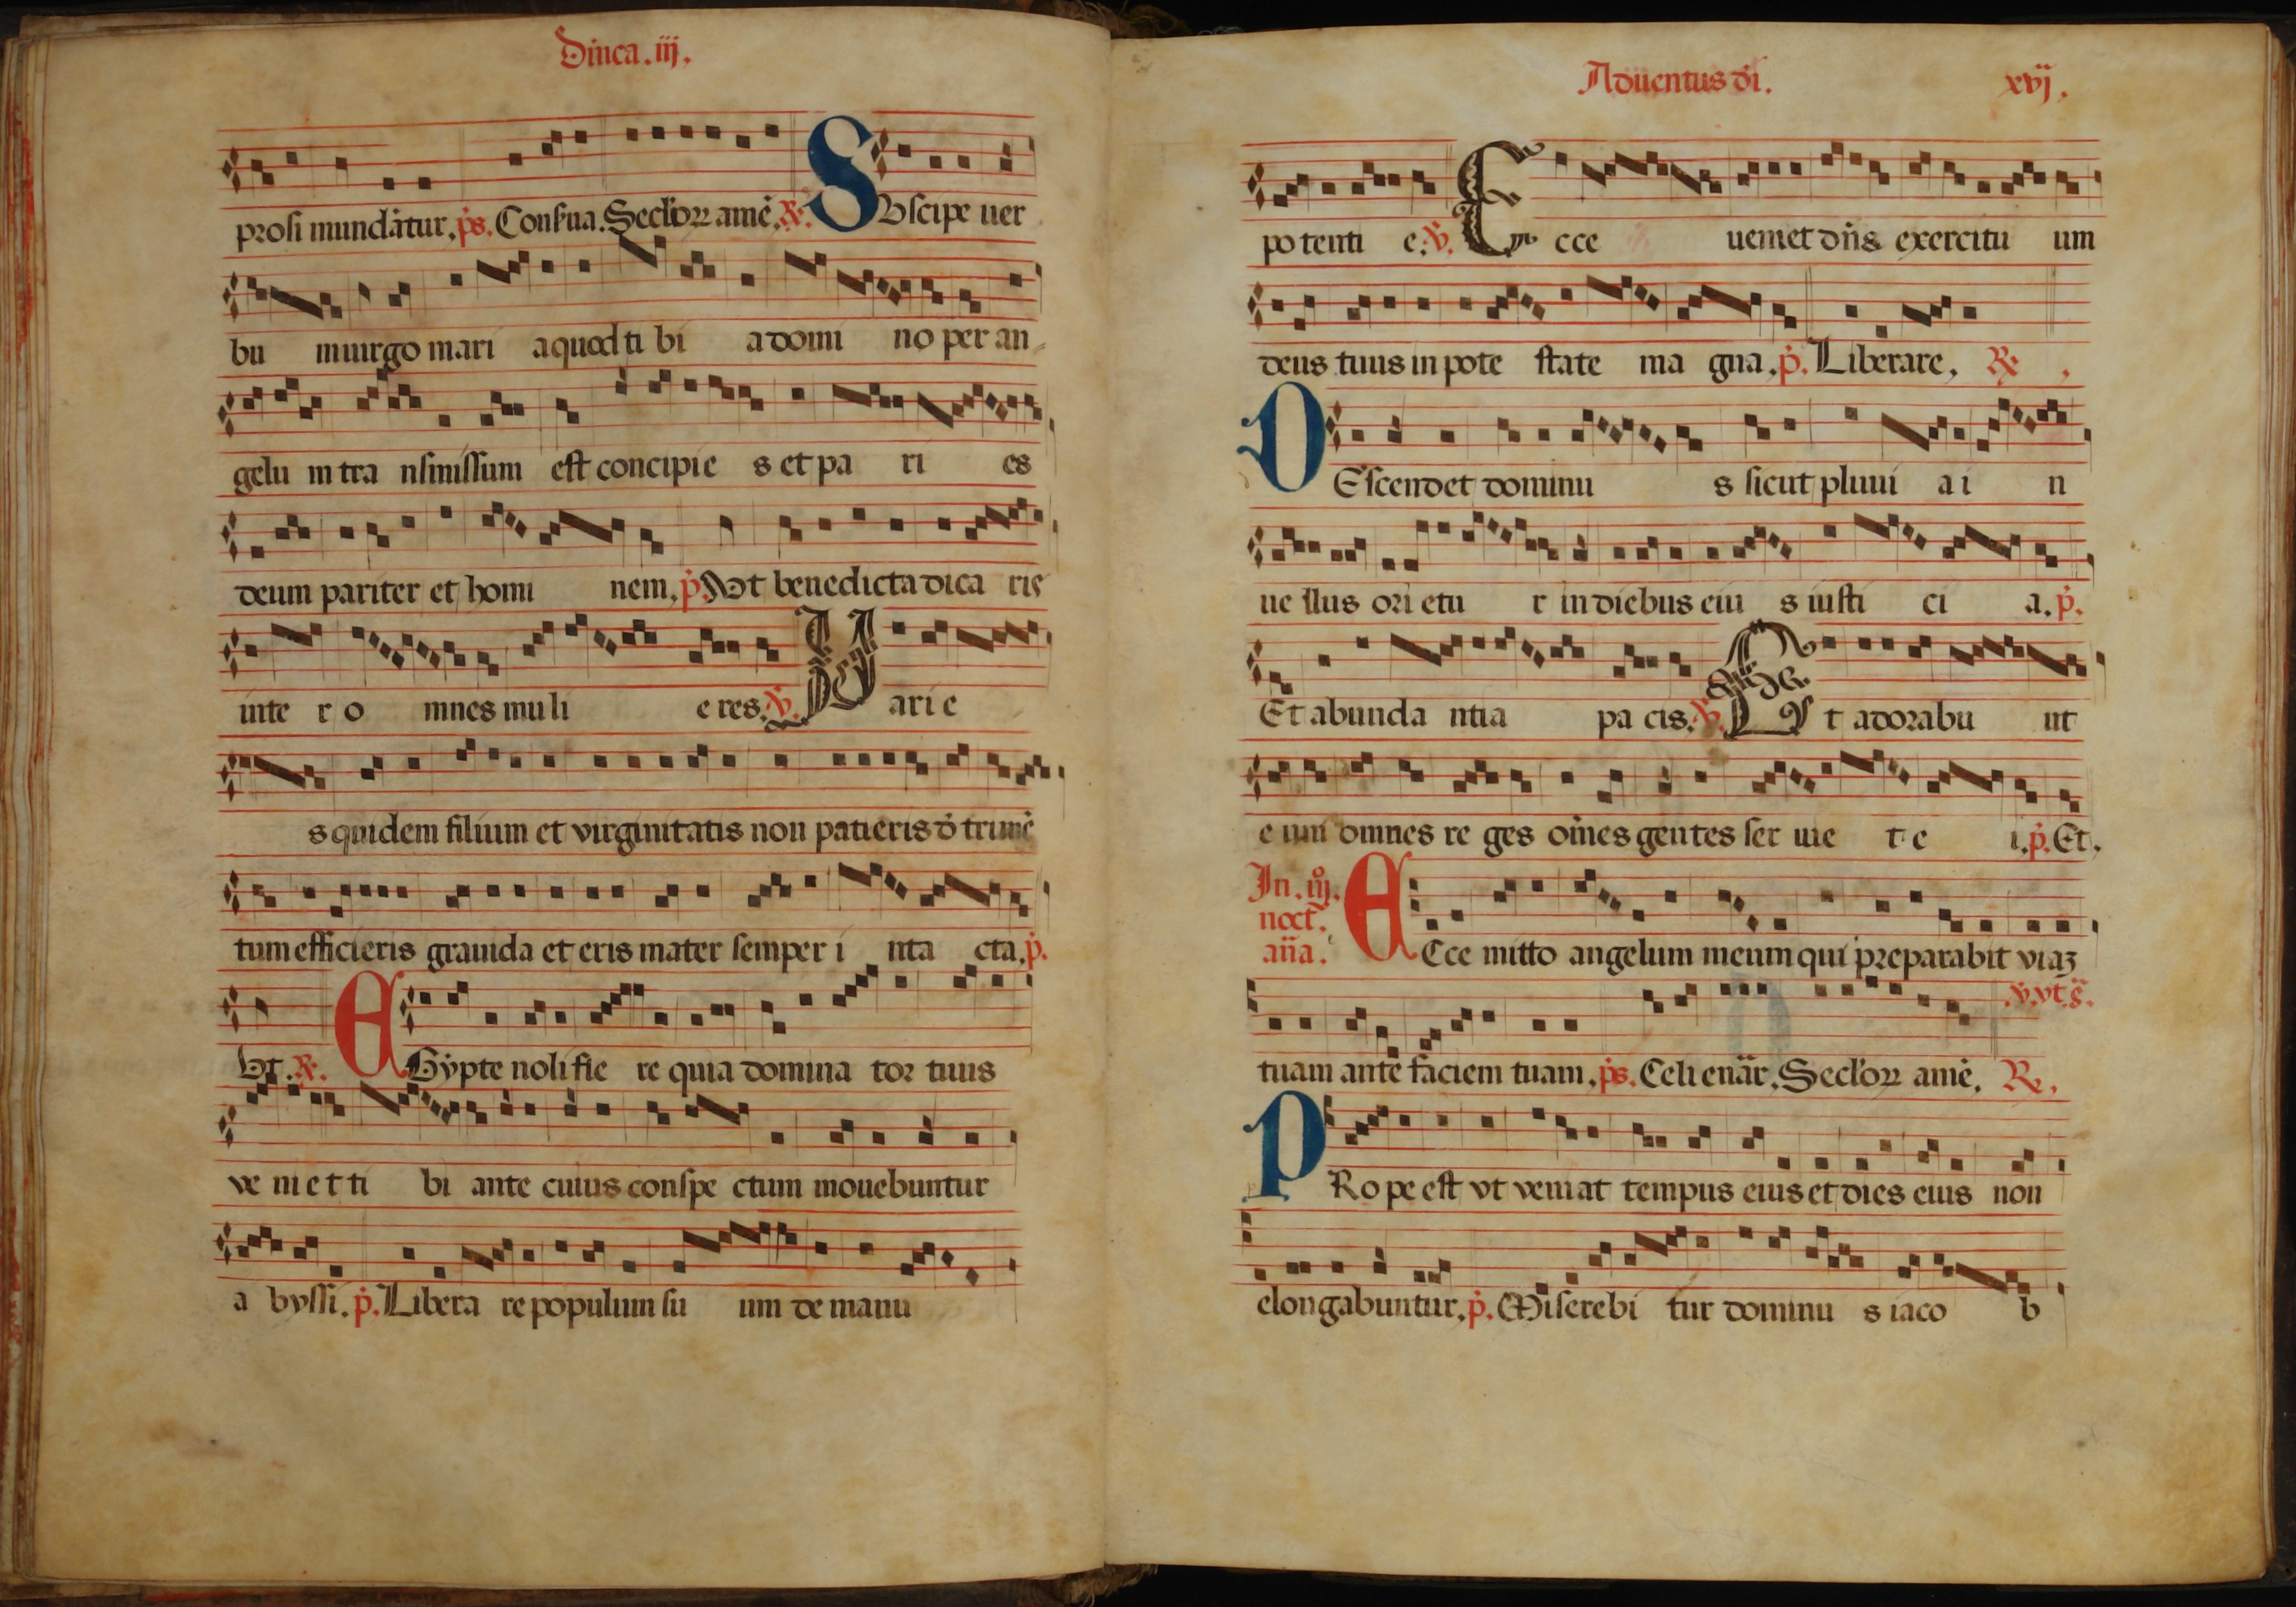 Dinca. iij.
prosi mundātur. ps. Conserua. Seclorꝝ amē. ℟. SVscipe uer
bu m uirgo mari a quod ti bi a domi no per an
gelu m tra nsmissum est concipie s et pa ri es
deum pariter et homi nem. p. Vt benedicta dica ris
inte r o mnes muli e res. ℣. Pari e
s quidem filium et virginitatis non patieris detrimē
tum efficieris grauida et eris mater semper i nta cta. p.
Vt. ℟. EGypte noli fle re quia domina tor tuus
ve ni e t ti bi ante cuius conspe ctum mouebuntur
a byssi. p. Libera re populum su um de manu
Aduentus dni. xvij.
po tenti e. ℣. E cce ueniet dn̄s exercitu um
deus tuus in pote state ma gna. p. Liberare. ℟.
DEscendet dominu s sicut pluui a i n
ue llus ori etu r in diebus eiu s iusti ci a. p.
Et abunda ntia pa cis. ℣. E t adorabu nt
e um omnes re ges om̄es gentes ser uie t e i. p. Et.
In. iij.
noct.
an̄a.
ECce mitto angelum meum qui preparabit viaꝫ
℣. vt. s.
tuam ante faciem tuam. ps. Celi enār. Seclorꝝ amē. ℟.
PRope est vt veniat tempus eius et dies eius non
elongabuntur. p. Miserebi tur dominu s iaco b